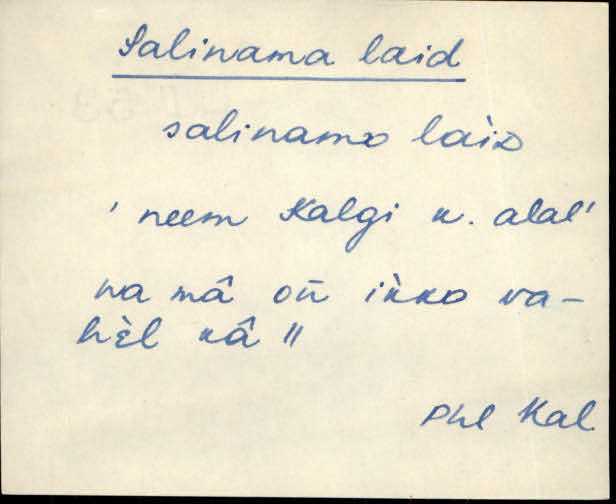 Salinama laid
salinamᴅ làiᴅ
' neem Kalgi k. alal'
na mâ oñ ìᴋᴋᴅ va-
hèl kâ ||
Phl Kal.